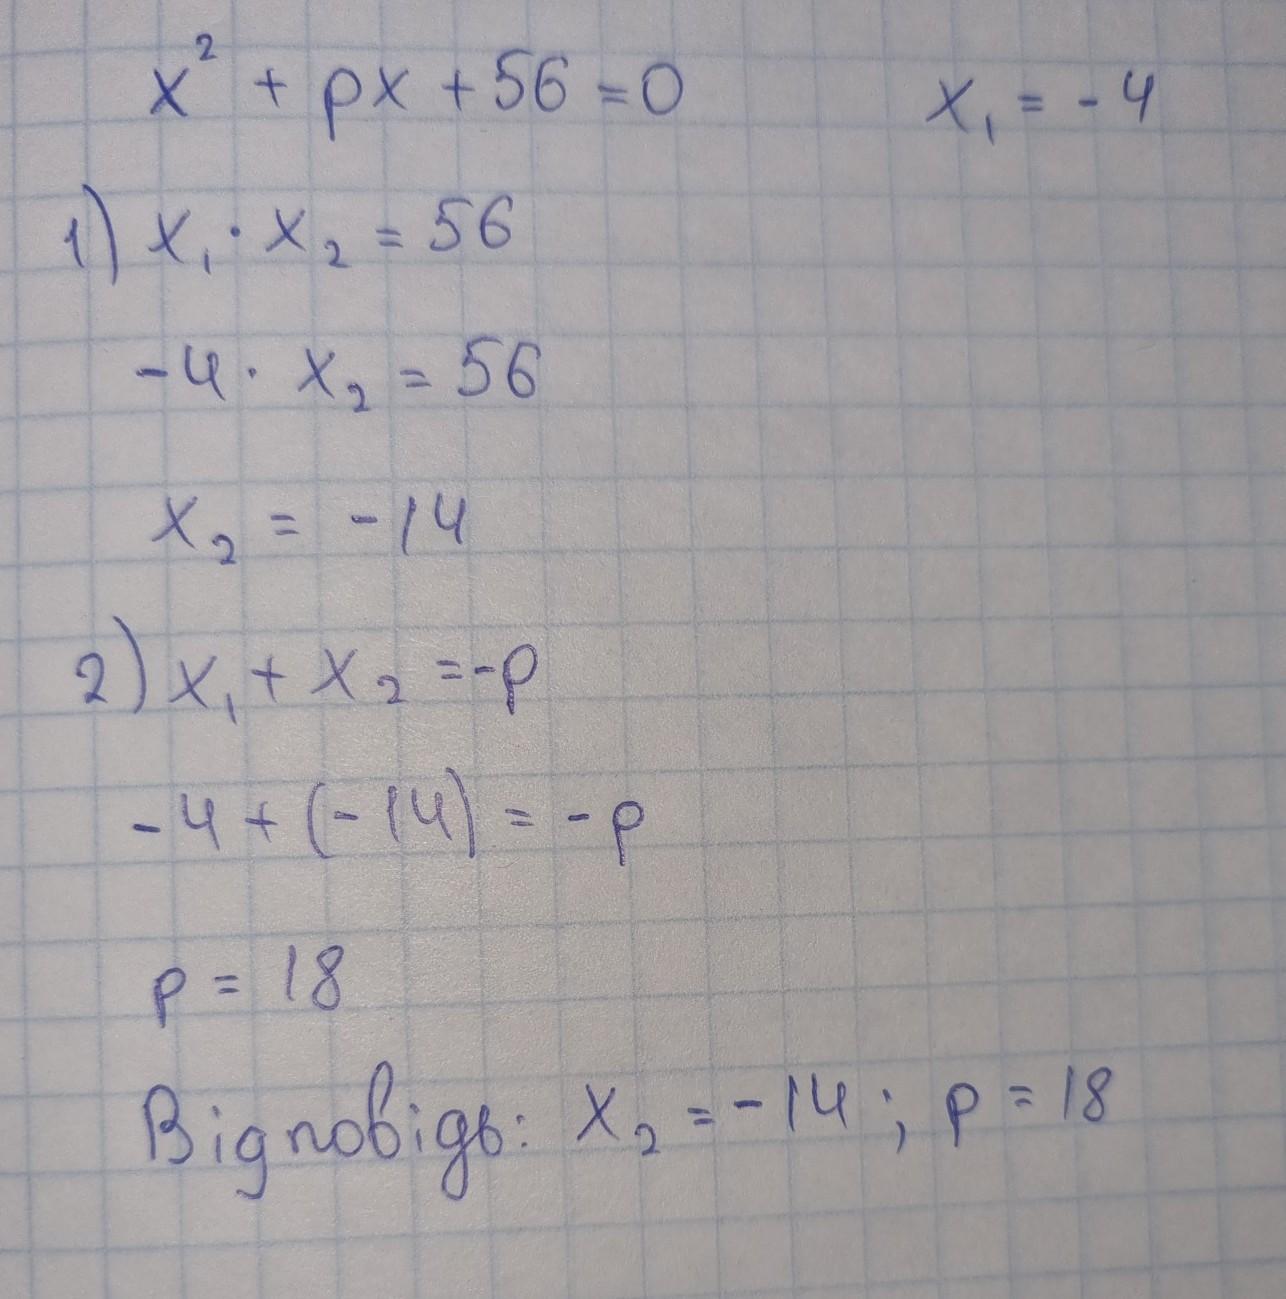 x² + px + 56 = 0 x₁ = - 4
1) x₁ · x₂ = 56
-4 · x₂ = 56
x₂ = -14
2) x₁ + x₂ = -p
-4 + (-14) = -p
p = 18
Відповідь: x₂ = -14 ; p = 18